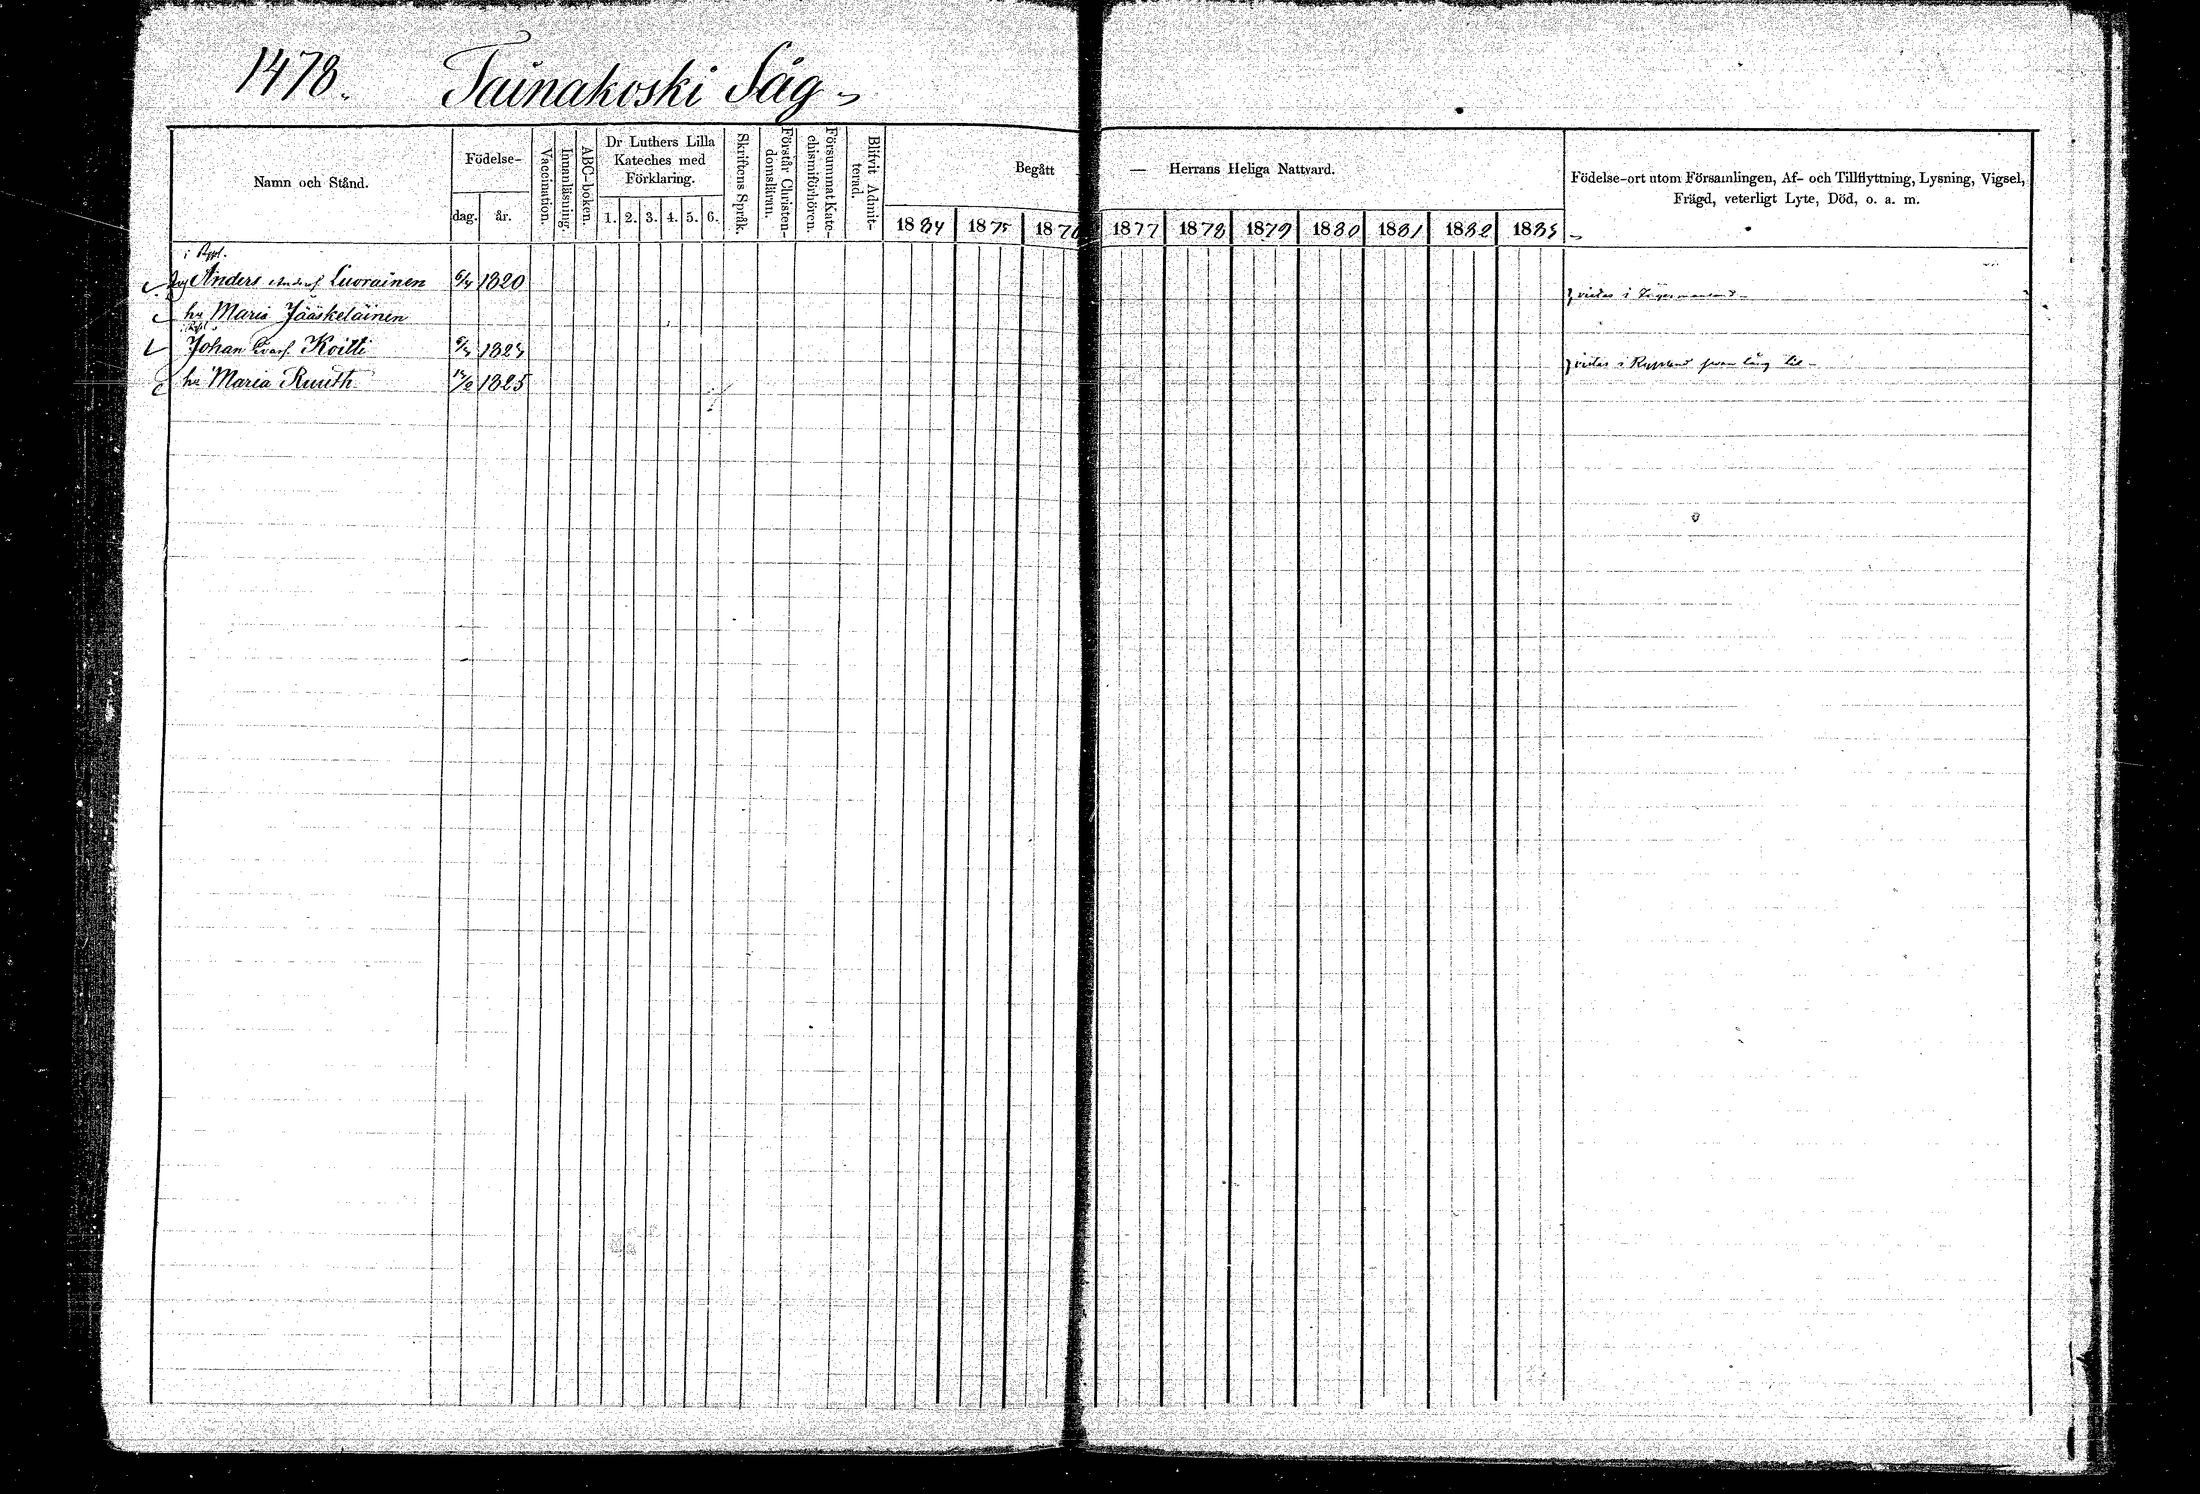 1478. Tainakoski Såg
Namn och Stånd.
Födelse-
dag. år.
Vaccination.
Innanläsning.
ABC-boken.
Dr Luthers Lilla
Kateches med
Förklaring.
1. 2. 3. 4. 5. 6.
Skriftens Språk.
Förstår Christen-
domsläran.
Försummat Kate-
chismiförhören.
Blifvit Admit-
terad.
Begått — Herrans Heliga Nattvard.
1884 1875 1876 1877 1878 1879 1880 1881 1882 1883
Födelse-ort utom Församlingen, Af- och Tillflyttning, Lysning, Vigsel,
Frägd, veterligt Lyte, Död, o. a. m.
Anders Luorainen 6/4 1820
vistas i
hu Maria Jääskeläinen
Johan Koitti
hu Maria Ruuth 1825
vistas i Ryssland